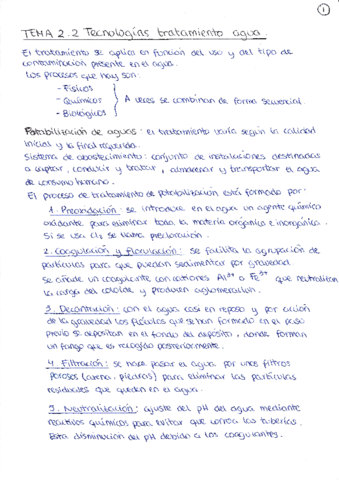 1
TEMA 2.2 Tecnologías tratamiento agua.
El tratamiento se aplica en función del uso y del tipo de
contaminación presente en el agua.
Los procesos que hay son:
- Físicos
- Químicos } A veces se combinan de forma secuencial.
- Biológicos
Potabilización de aguas: el tratamiento varía según la calidad
inicial y la final requerida.
Sistema de abastecimiento: conjunto de instalaciones destinadas
a captar, conducir y tratar, almacenar y transportar el agua
de consumo humano.
El proceso de tratamiento de potabilización está formado por:
1. Preoxidación: se introduce en el agua un agente químico
oxidante para eliminar toda la materia orgánica e inorgánica.
Si se usa Cl2 se llama precloración.
2. Coagulación y floculación: se facilita la agrupación de
partículas para que puedan sedimentar por gravedad.
Se añade un coagulante con cationes Al3+ o Fe3+ que neutralicen
la carga del coloide y producen aglomeración.
3. Decantación: con el agua casi en reposo y por acción
de la gravedad los flóculos que se han formado en el paso
previo se depositan en el fondo del depósito, donde forman
un fango que es recogido posteriormente.
4. Filtración: se hace pasar el agua por unos filtros
porosos (arena, piedras) para eliminar las partículas
residuales que queden en el agua.
5. Neutralización: ajuste del pH del agua mediante
reactivos químicos para evitar que corroa las tuberías.
Esta disminución del pH debido a los coagulantes.